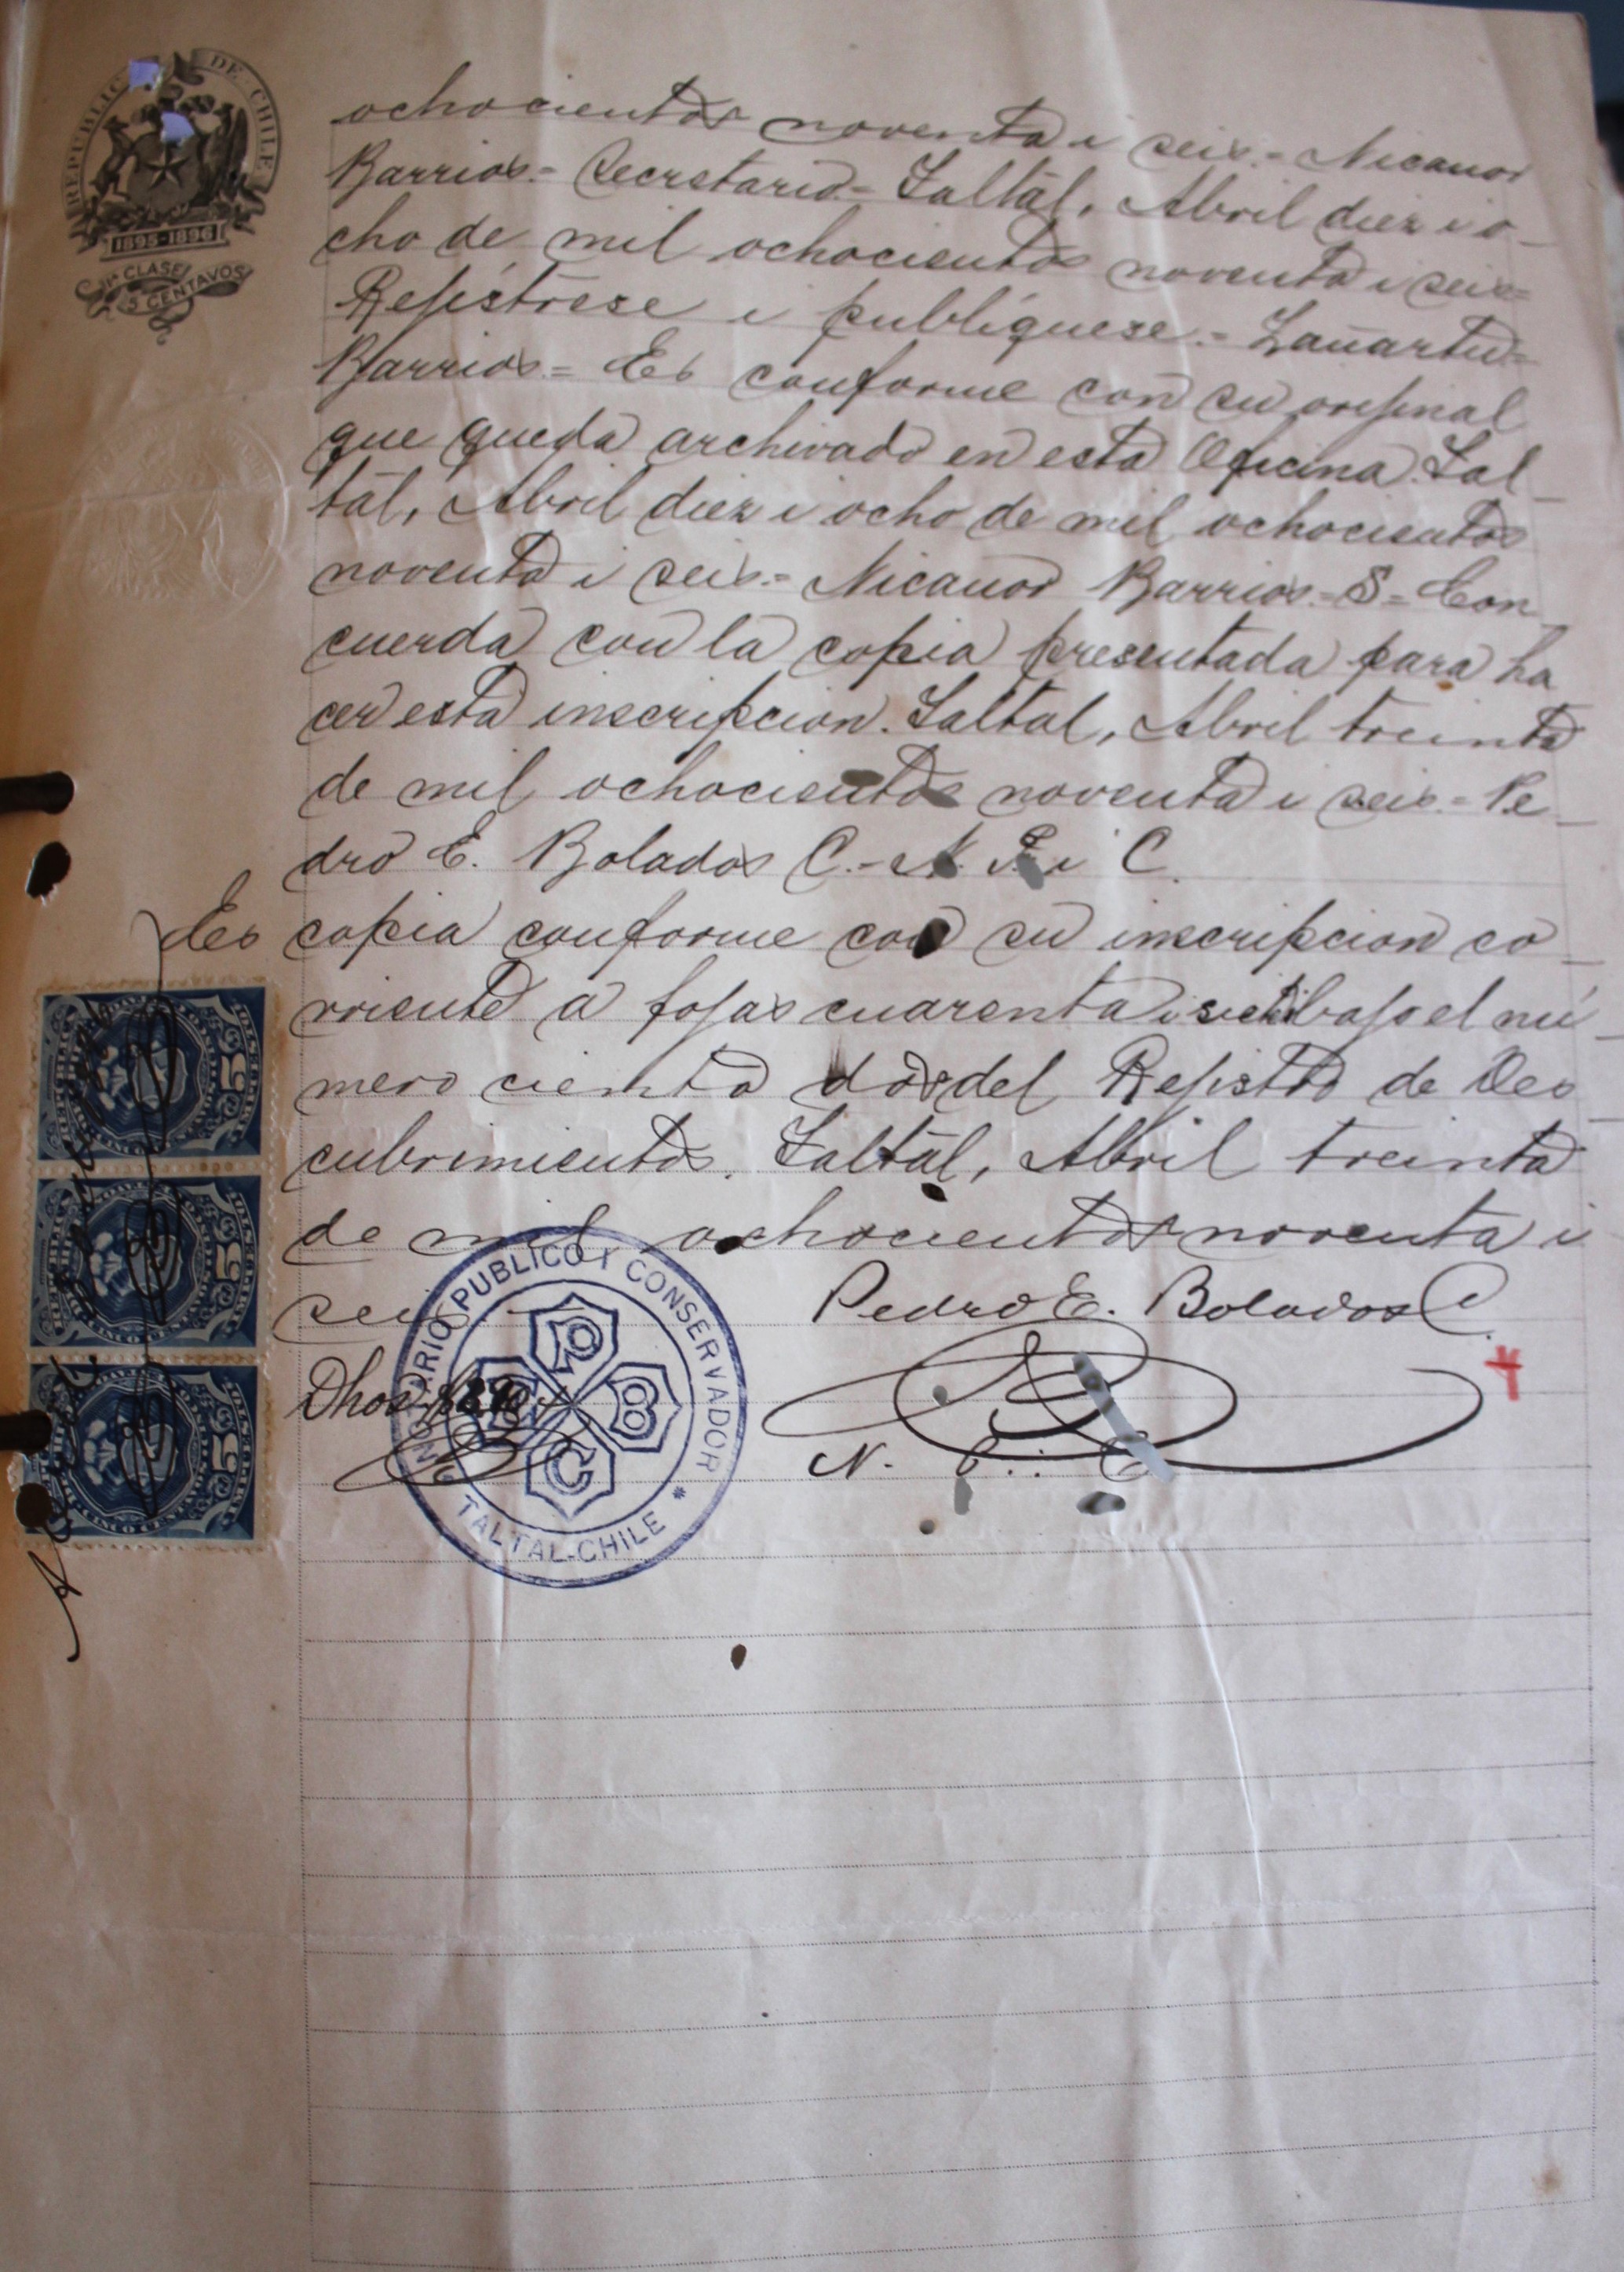 REPUBLICA DE CHILE
1895-1896
1ª CLASE
5 CENTAVOS
ochocientos noventa i seis.= Nicanor
Barrios.= Secretario= Taltal, Abril diez i o-
cho de mil ochocientos noventa i seis=
Rejístrese i publíquese.= Zañartu=
Barrios.= Es conforme con su orijinal
que queda archivado en esta Oficina. Tal-
tal, Abril diez i ocho de mil ochocientos
noventa i seis.= Nicanor Barrios.= S= Con
cuerda con la copia presentada para ha
cer esta inscripcion. Taltal, Abril treinta
de mil ochocientos noventa i seis.= Pe-
dro E. Bolados C.- N. P. i C.
Es copia conforme con su inscripcion co-
rriente a fojas cuarenta i siete bajo el nú-
mero ciento dos del Rejistro de Des-
cubrimientos. Taltal, Abril treinta
de mil ochocientos noventa i
seis
Pedro E. Bolados C.
Dhos
N. P. i C
NOTARIO PUBLICO I CONSERVADOR
P
E B
C
TALTAL-CHILE *
5
5
5
CINCO CENTAVOS